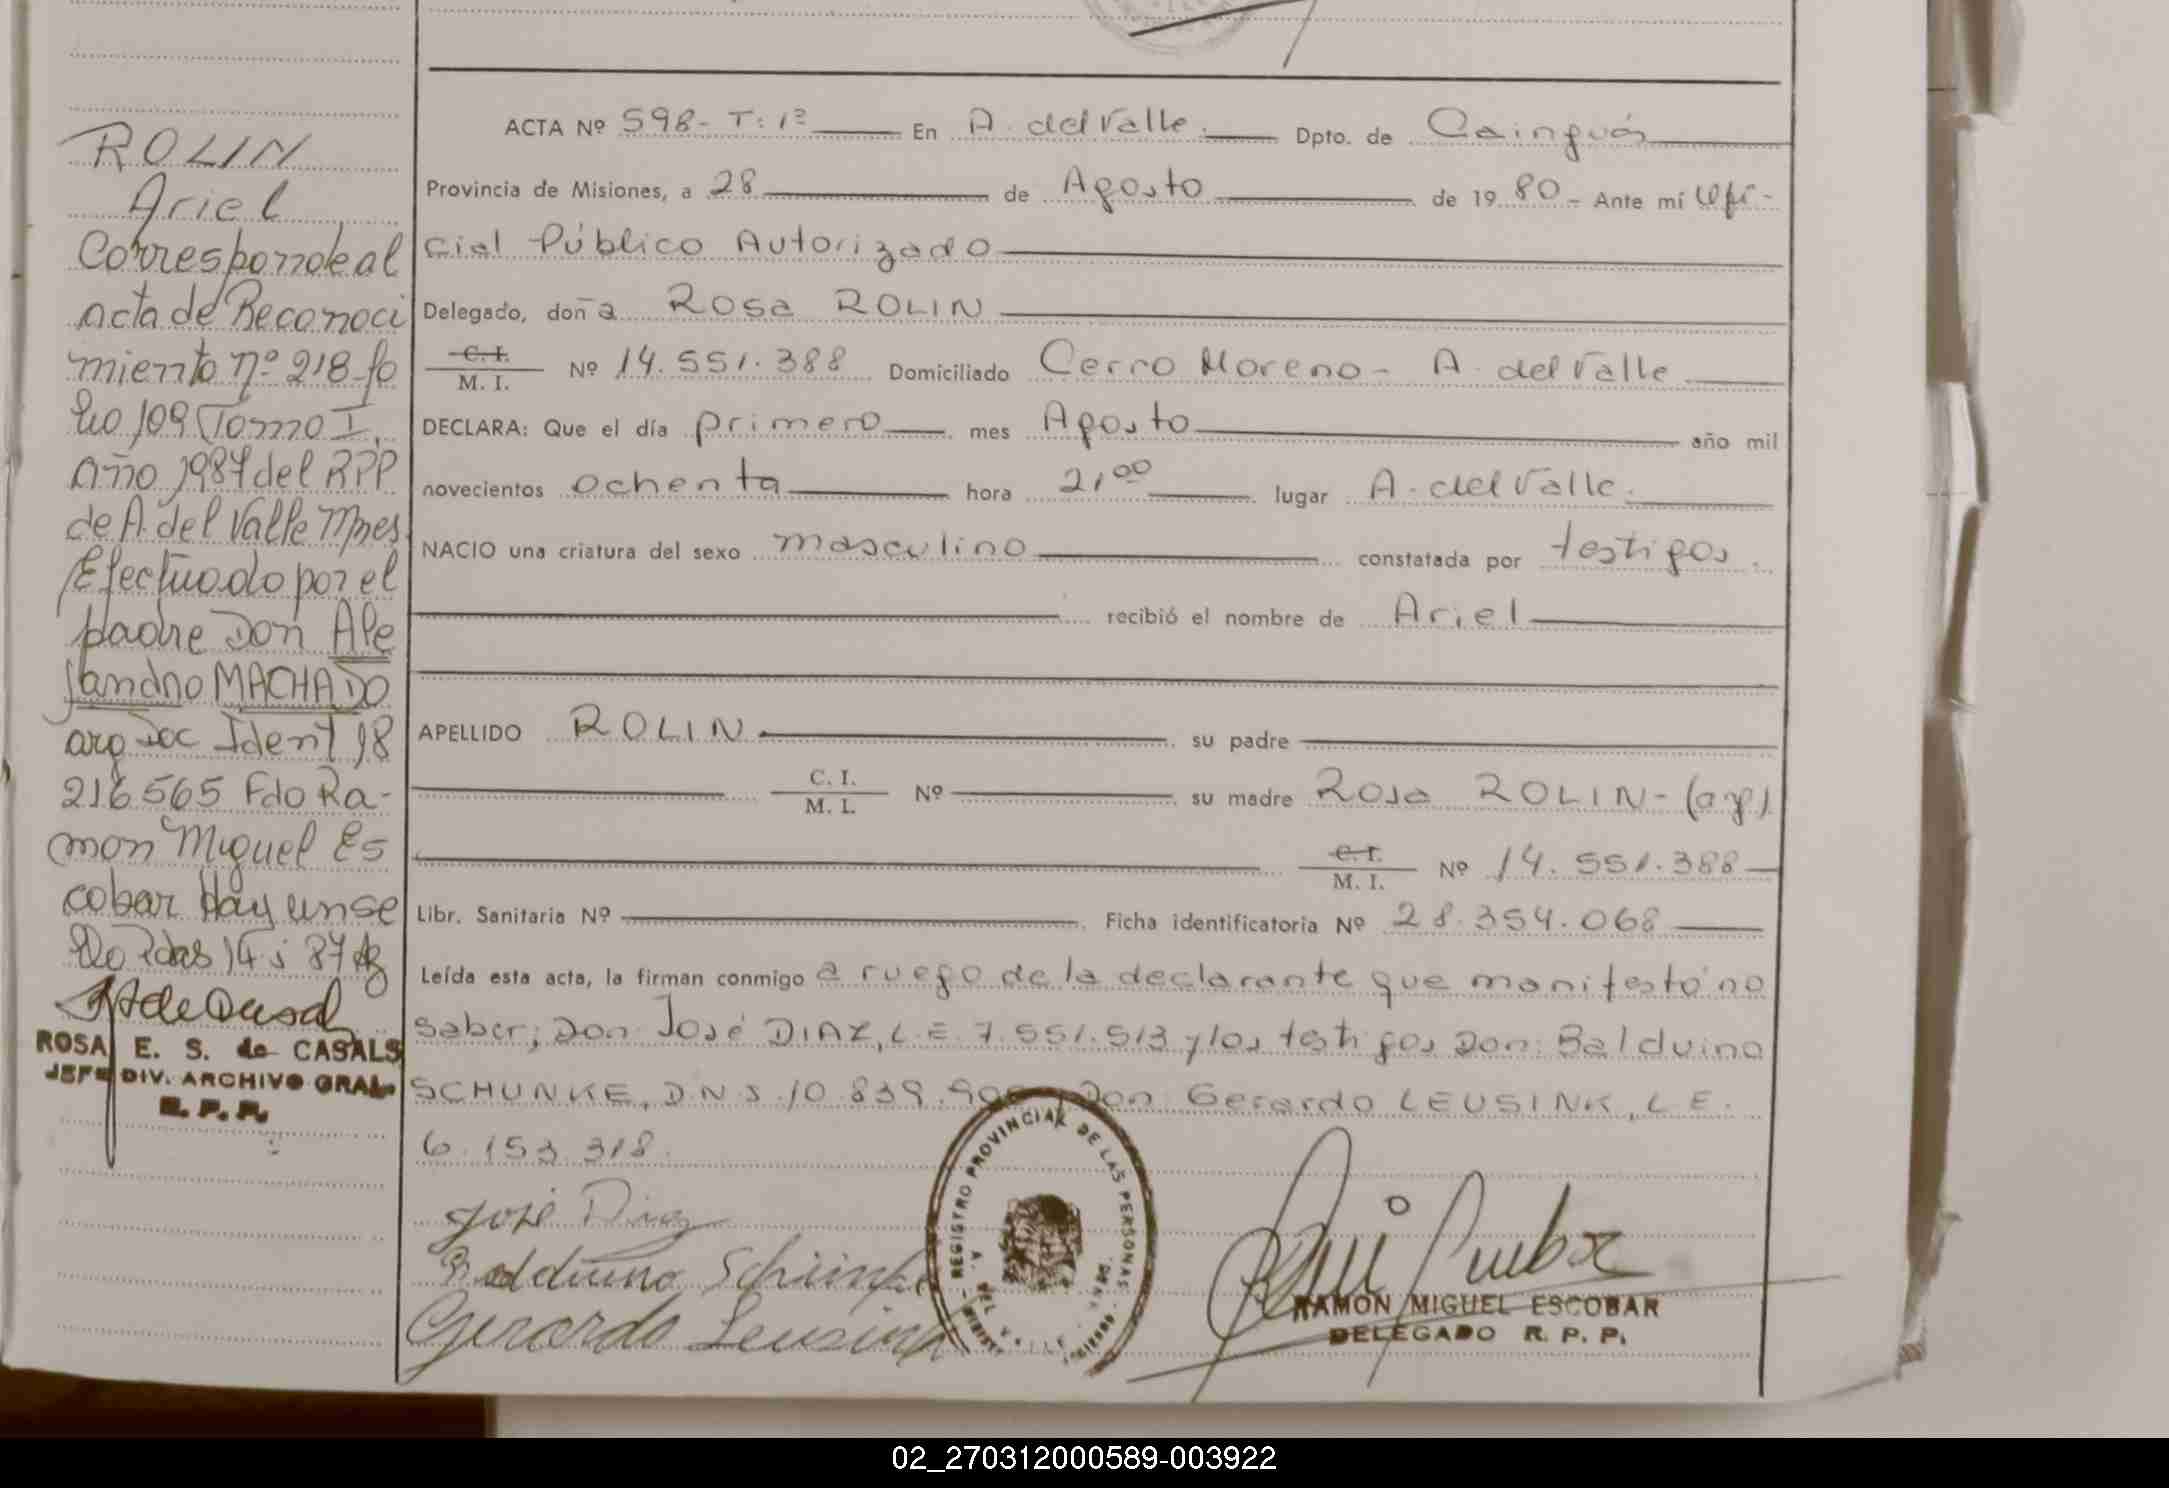 ROLIN
Ariel
Corresponde al
acta de Reconoci
miento nº 218 fo
lio 109 Tomo I,
Año 1987 del RPP
de A. del Valle Mnes
Efectuado por el
padre Don Ale
jandro MACHADO
arg Doc Ident 18
216 565 Fdo Ra-
mon Miguel Es
cobar Hay un se
llo Pdas 87
ROSA E. S. de CASALS
JEFE DIV. ARCHIVO GRAL.
R. P. P.
ACTA Nº 598- T: 1º En A. del Valle. Dpto. de Cainguás
Provincia de Misiones, a 28 de Agosto de 19 80 - Ante mí Ofi-
cial Público Autorizado
Delegado, doña Rosa ROLIN
C. I.
M. I. Nº 14.551.388 Domiciliado Cerro Moreno - A. del Valle
DECLARA: Que el día primero mes Agosto año mil
novecientos ochenta hora 21,00 lugar A. del Valle.
NACIO una criatura del sexo masculino constatada por testigos.
recibió el nombre de Ariel
APELLIDO ROLIN su padre
C. I.
M. I. Nº su madre Rosa ROLIN - (arg)
C. I.
M. I. Nº 14.551.388
Libr. Sanitaria Nº Ficha identificatoria Nº 28.354.068
Leída esta acta, la firman conmigo a ruego de la declarante que manifestó no
saber; Don José DIAZ, L.E. 7.551.513 y los testigos Don Balduino
SCHUNKE, D.N.I. 10.839. Don Gerardo LEUSINK, L.E.
6.153.318.
José Diaz
Balduino Schünke
Gerardo Leusink
REGISTRO PROVINCIAL DE LAS PERSONAS
RAMON MIGUEL ESCOBAR
DELEGADO R. P. P.
02_270312000589-003922